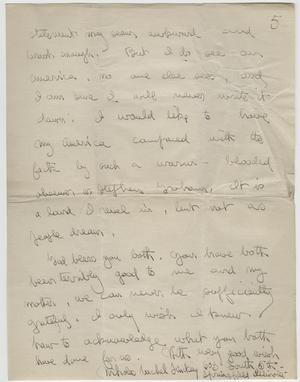 5
statement may seem awkward and
brash enough. But I do see an
America, no one else sees, and
I am sure I will never write it
down. I would like to have
my America compared with the
facts by such a warm-blooded
observer as Stephen Graham. It is
a land I revel in, but not as
people dream.
God bless you both. You have both
been terribly good to me and my
mother, we can never be sufficiently
grateful. I only wish I knew
how to acknowledge what you both
have done for us. With very good wish
Nicholas Vachel Lindsay South 5th
Springfield Illinois